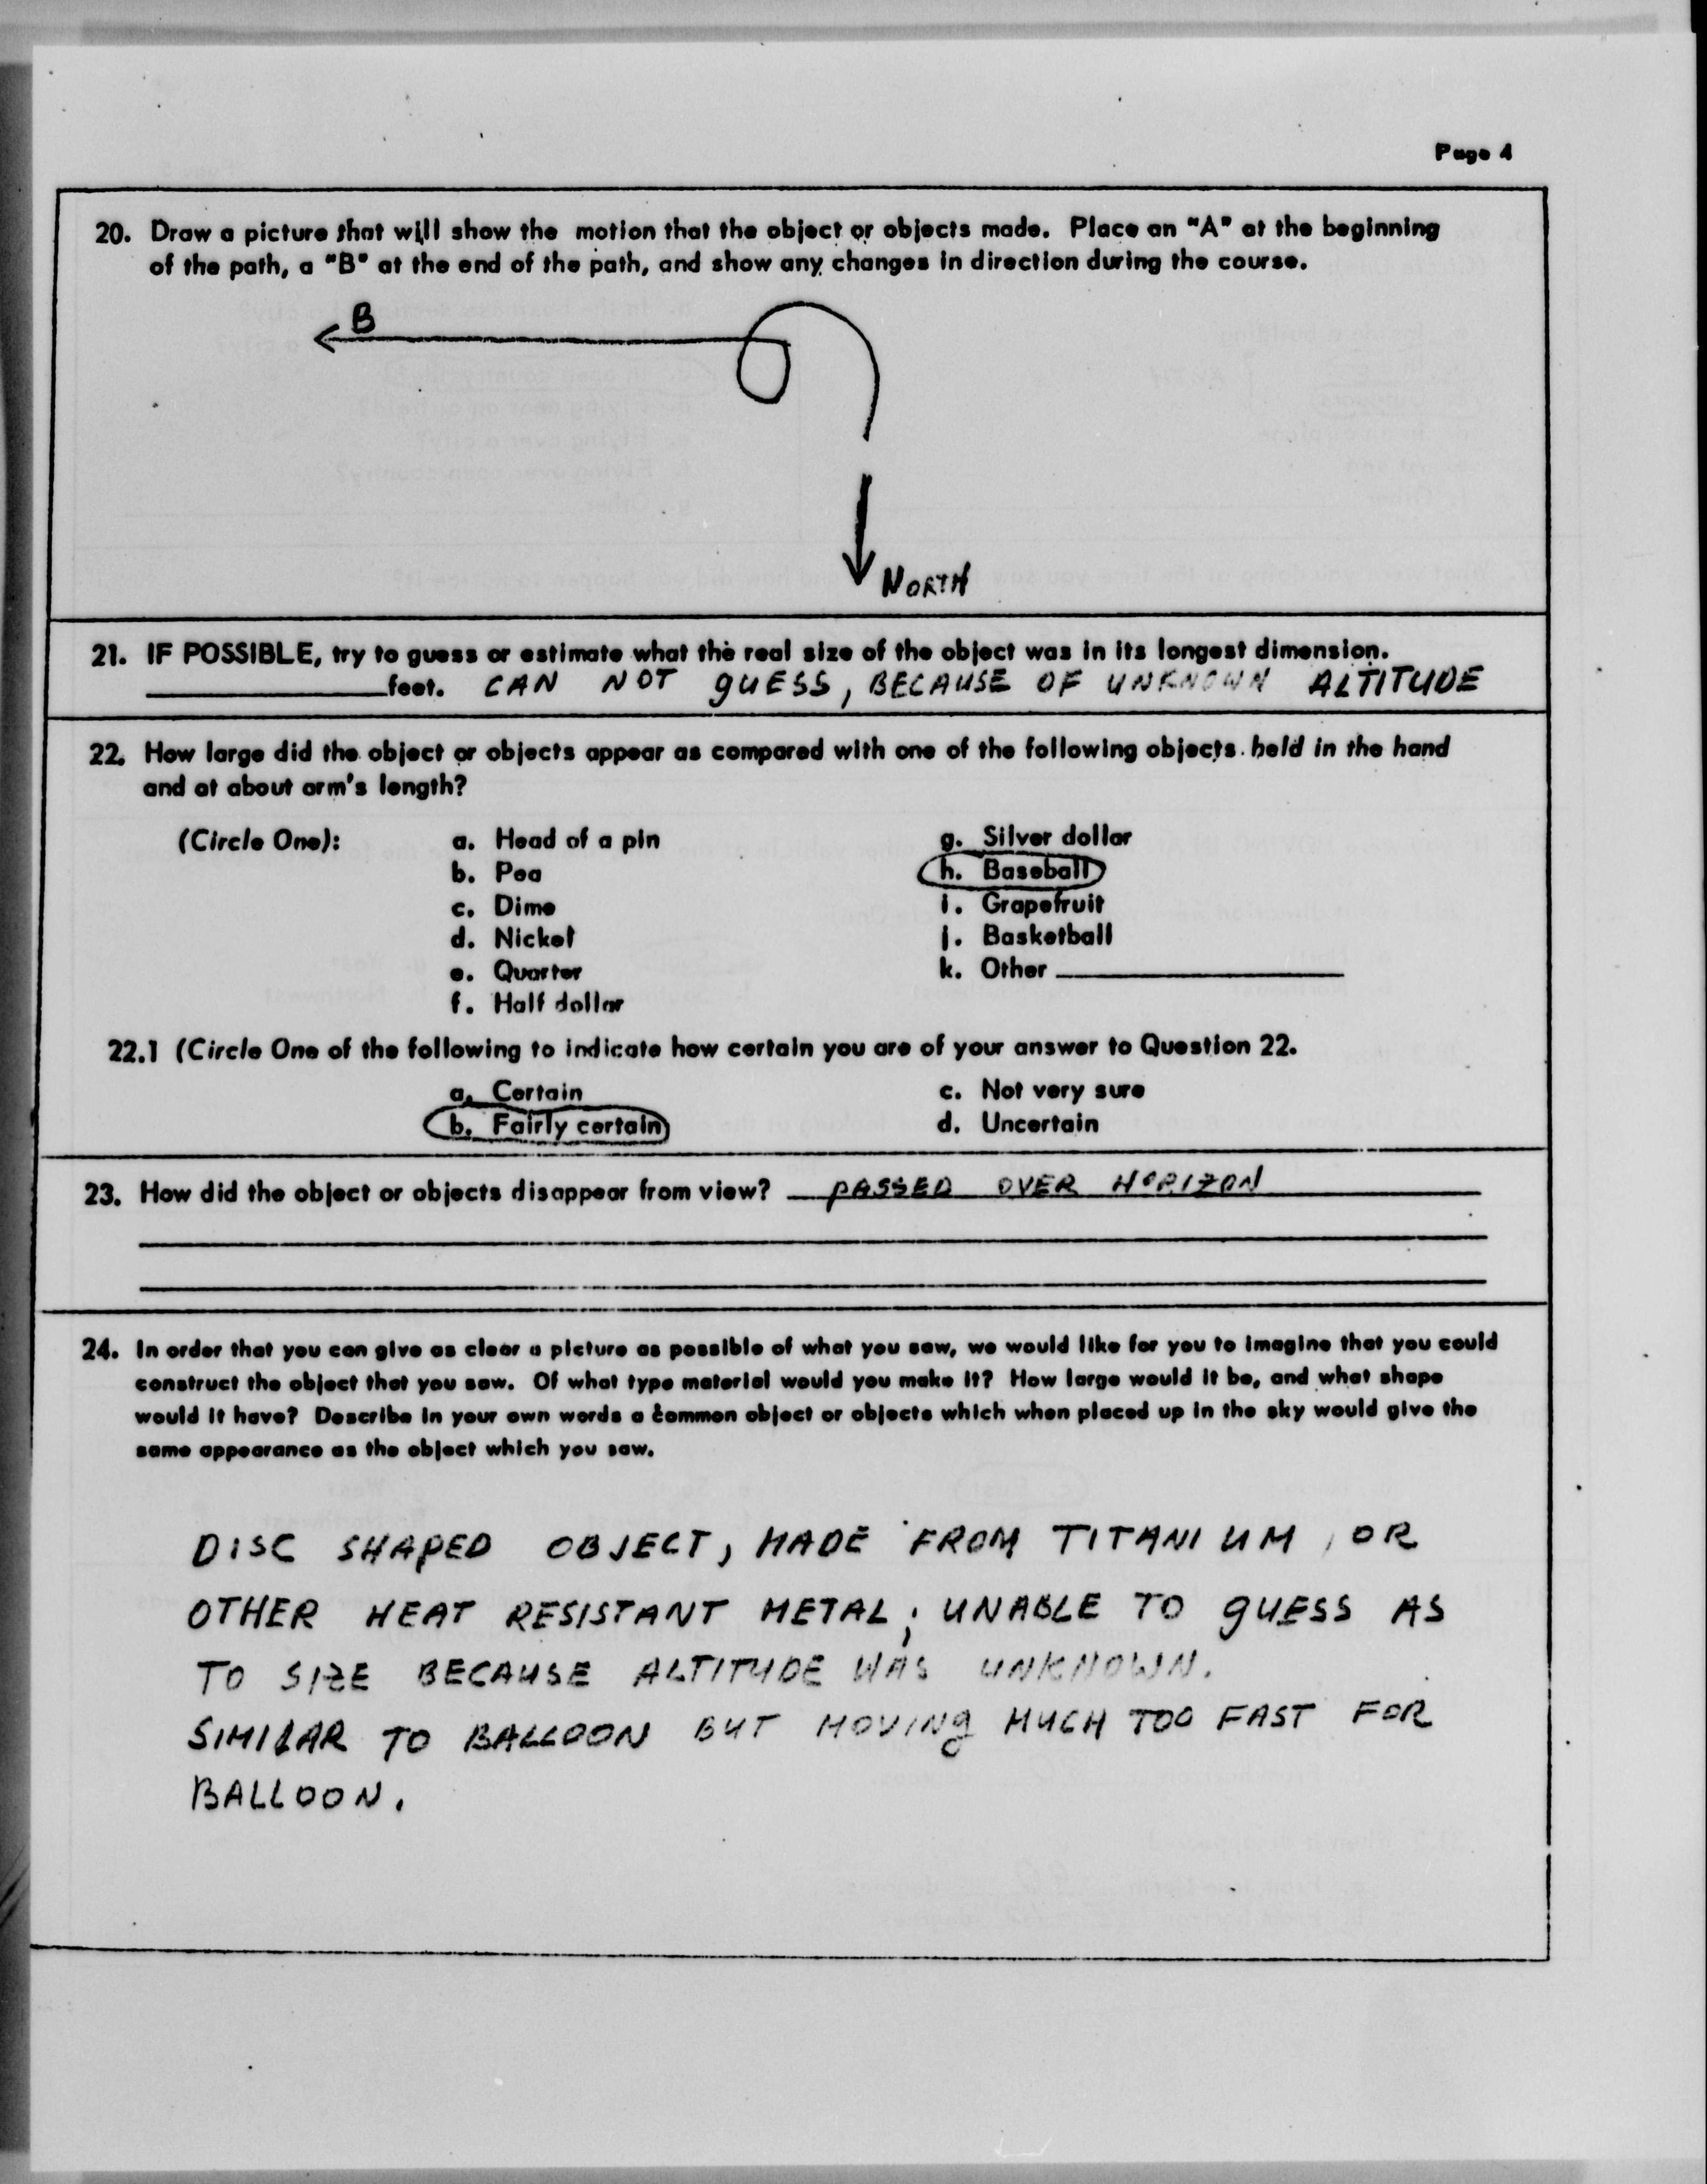 Page 4
20. Draw a picture that will show the motion that the object or objects made. Place an "A" at the beginning
of the path, a "B" at the end of the path, and show any changes in direction during the course.
B
NORTH
21. IF POSSIBLE, try to guess or estimate what the real size of the object was in its longest dimension.
____________feet. CAN NOT GUESS, BECAUSE OF UNKNOWN ALTITUDE
22. How large did the object or objects appear as compared with one of the following objects held in the hand
and at about arm's length?
(Circle One): a. Head of a pin g. Silver dollar
b. Pea h. Baseball
c. Dime i. Grapefruit
d. Nickel j. Basketball
e. Quarter k. Other ____________
f. Half dollar
22.1 (Circle One of the following to indicate how certain you are of your answer to Question 22.
a. Certain c. Not very sure
b. Fairly certain d. Uncertain
23. How did the object or objects disappear from view? PASSED OVER HORIZON
24. In order that you can give as clear a picture as possible of what you saw, we would like for you to imagine that you could
construct the object that you saw. Of what type material would you make it? How large would it be, and what shape
would it have? Describe in your own words a common object or objects which when placed up in the sky would give the
same appearance as the object which you saw.
DISC SHAPED OBJECT, MADE FROM TITANIUM, OR
OTHER HEAT RESISTANT METAL; UNABLE TO GUESS AS
TO SIZE BECAUSE ALTITUDE WAS UNKNOWN.
SIMILAR TO BALLOON BUT MOVING MUCH TOO FAST FOR
BALLOON.